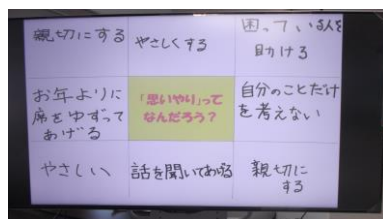 親切にする
やさしくする
困っている人を
助ける
お年よりに
席をゆずって
あげる
「思いやり」って
なんだろう?
自分のことだけ
を考えない
やさしい
話を聞いてあげる
親切に
する